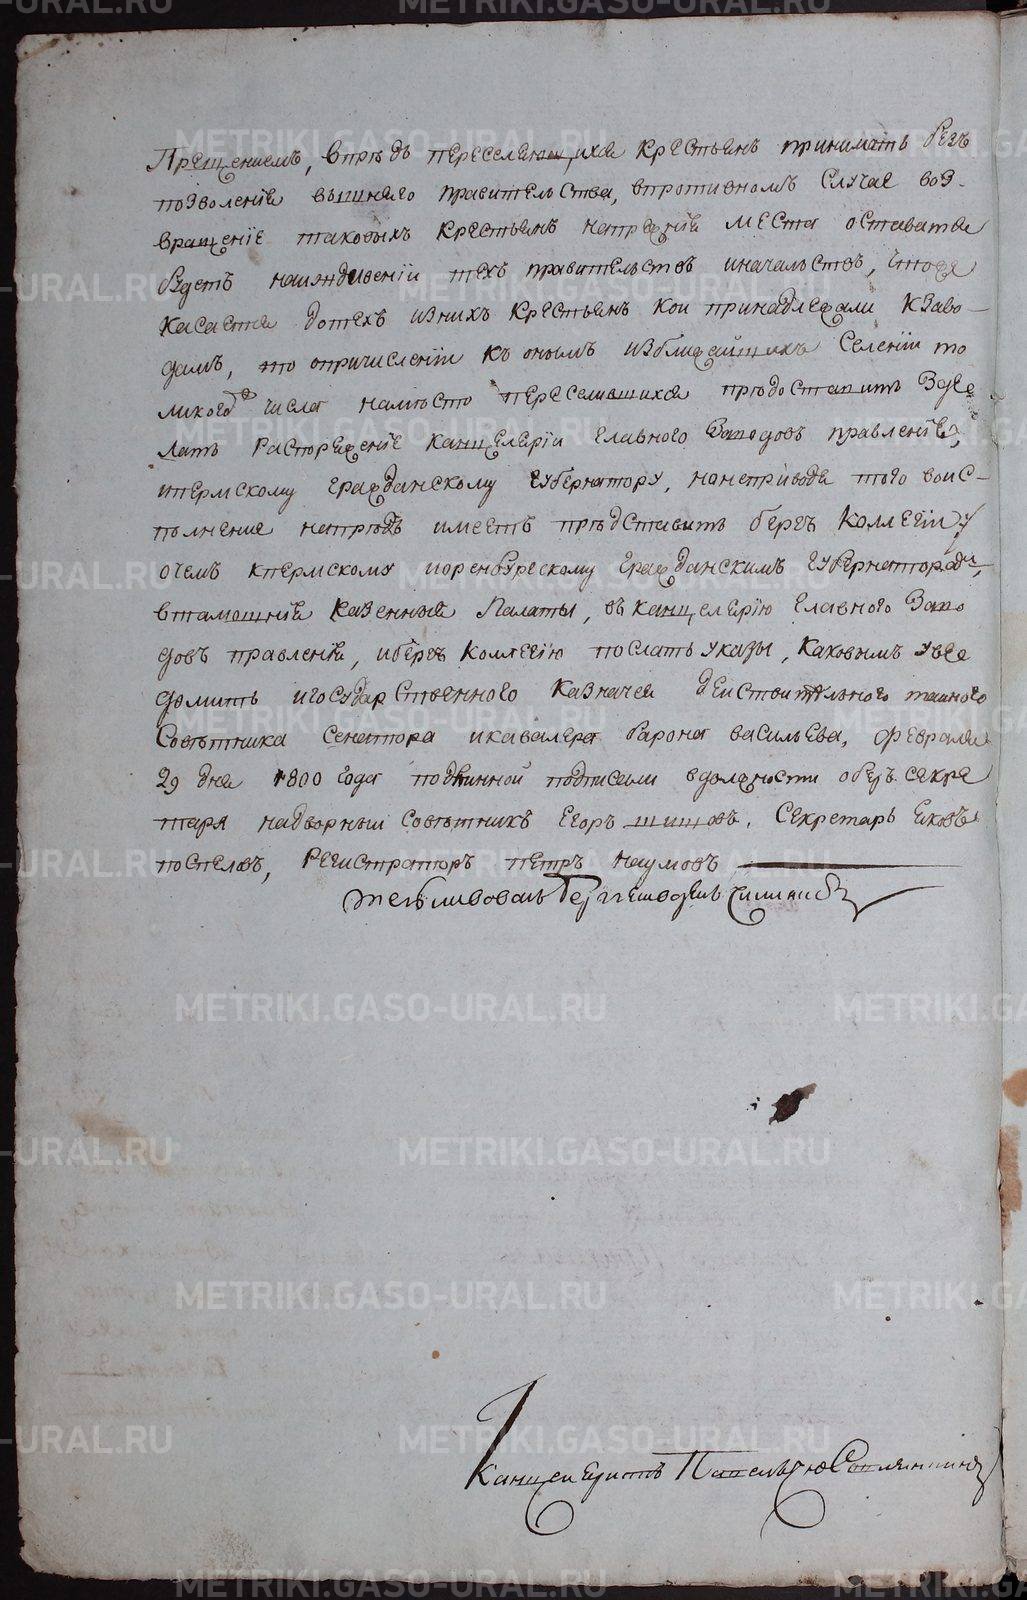 Прещениемъ, впредь переселяющихся крестьянъ принимать безъ
позволенїя вышняго правительства, впротивномъ случае воз-
вращенїе таковыхъ крестьянъ напрежнїя места оставатся
будетъ наиждивенїи техъ правительствъ иначальствъ, чтоже
касается дотехъ изнихъ крестьянъ кои принадлежали кзаво-
дамъ, то опричисленїи къ онымъ изближайшихъ селенїи то
ликого числа наместо переселившихся предоставить зде
лать распоряженїе канцелярїи главного заводовъ правленїя,
ипермскому гражданскому губернатору, ненетриводя того воис-
полненїе напредь имеетъ представить бергъ коллегїи,
очемъ кпермскому иоренбургскому гражданскимъ губернаторамъ,
втамошнїе казенныя палаты, въ канцелярїю главного заво
довъ правленїя, ибергъ коллегїю послать указы, каковымъ уве
домить игосударственного казначея действительного таиного
советника сенатора икавалера барона васильева, февраля
29 дня 1800 года подлинной подписали вдолжности оберъ секре
таря надворный советникъ егоръ шишовъ, секретарь яковъ
поспеловъ, регистраторъ петръ наумовъ
Канцеляристъ
METRIKI.GASO-URAL.RU